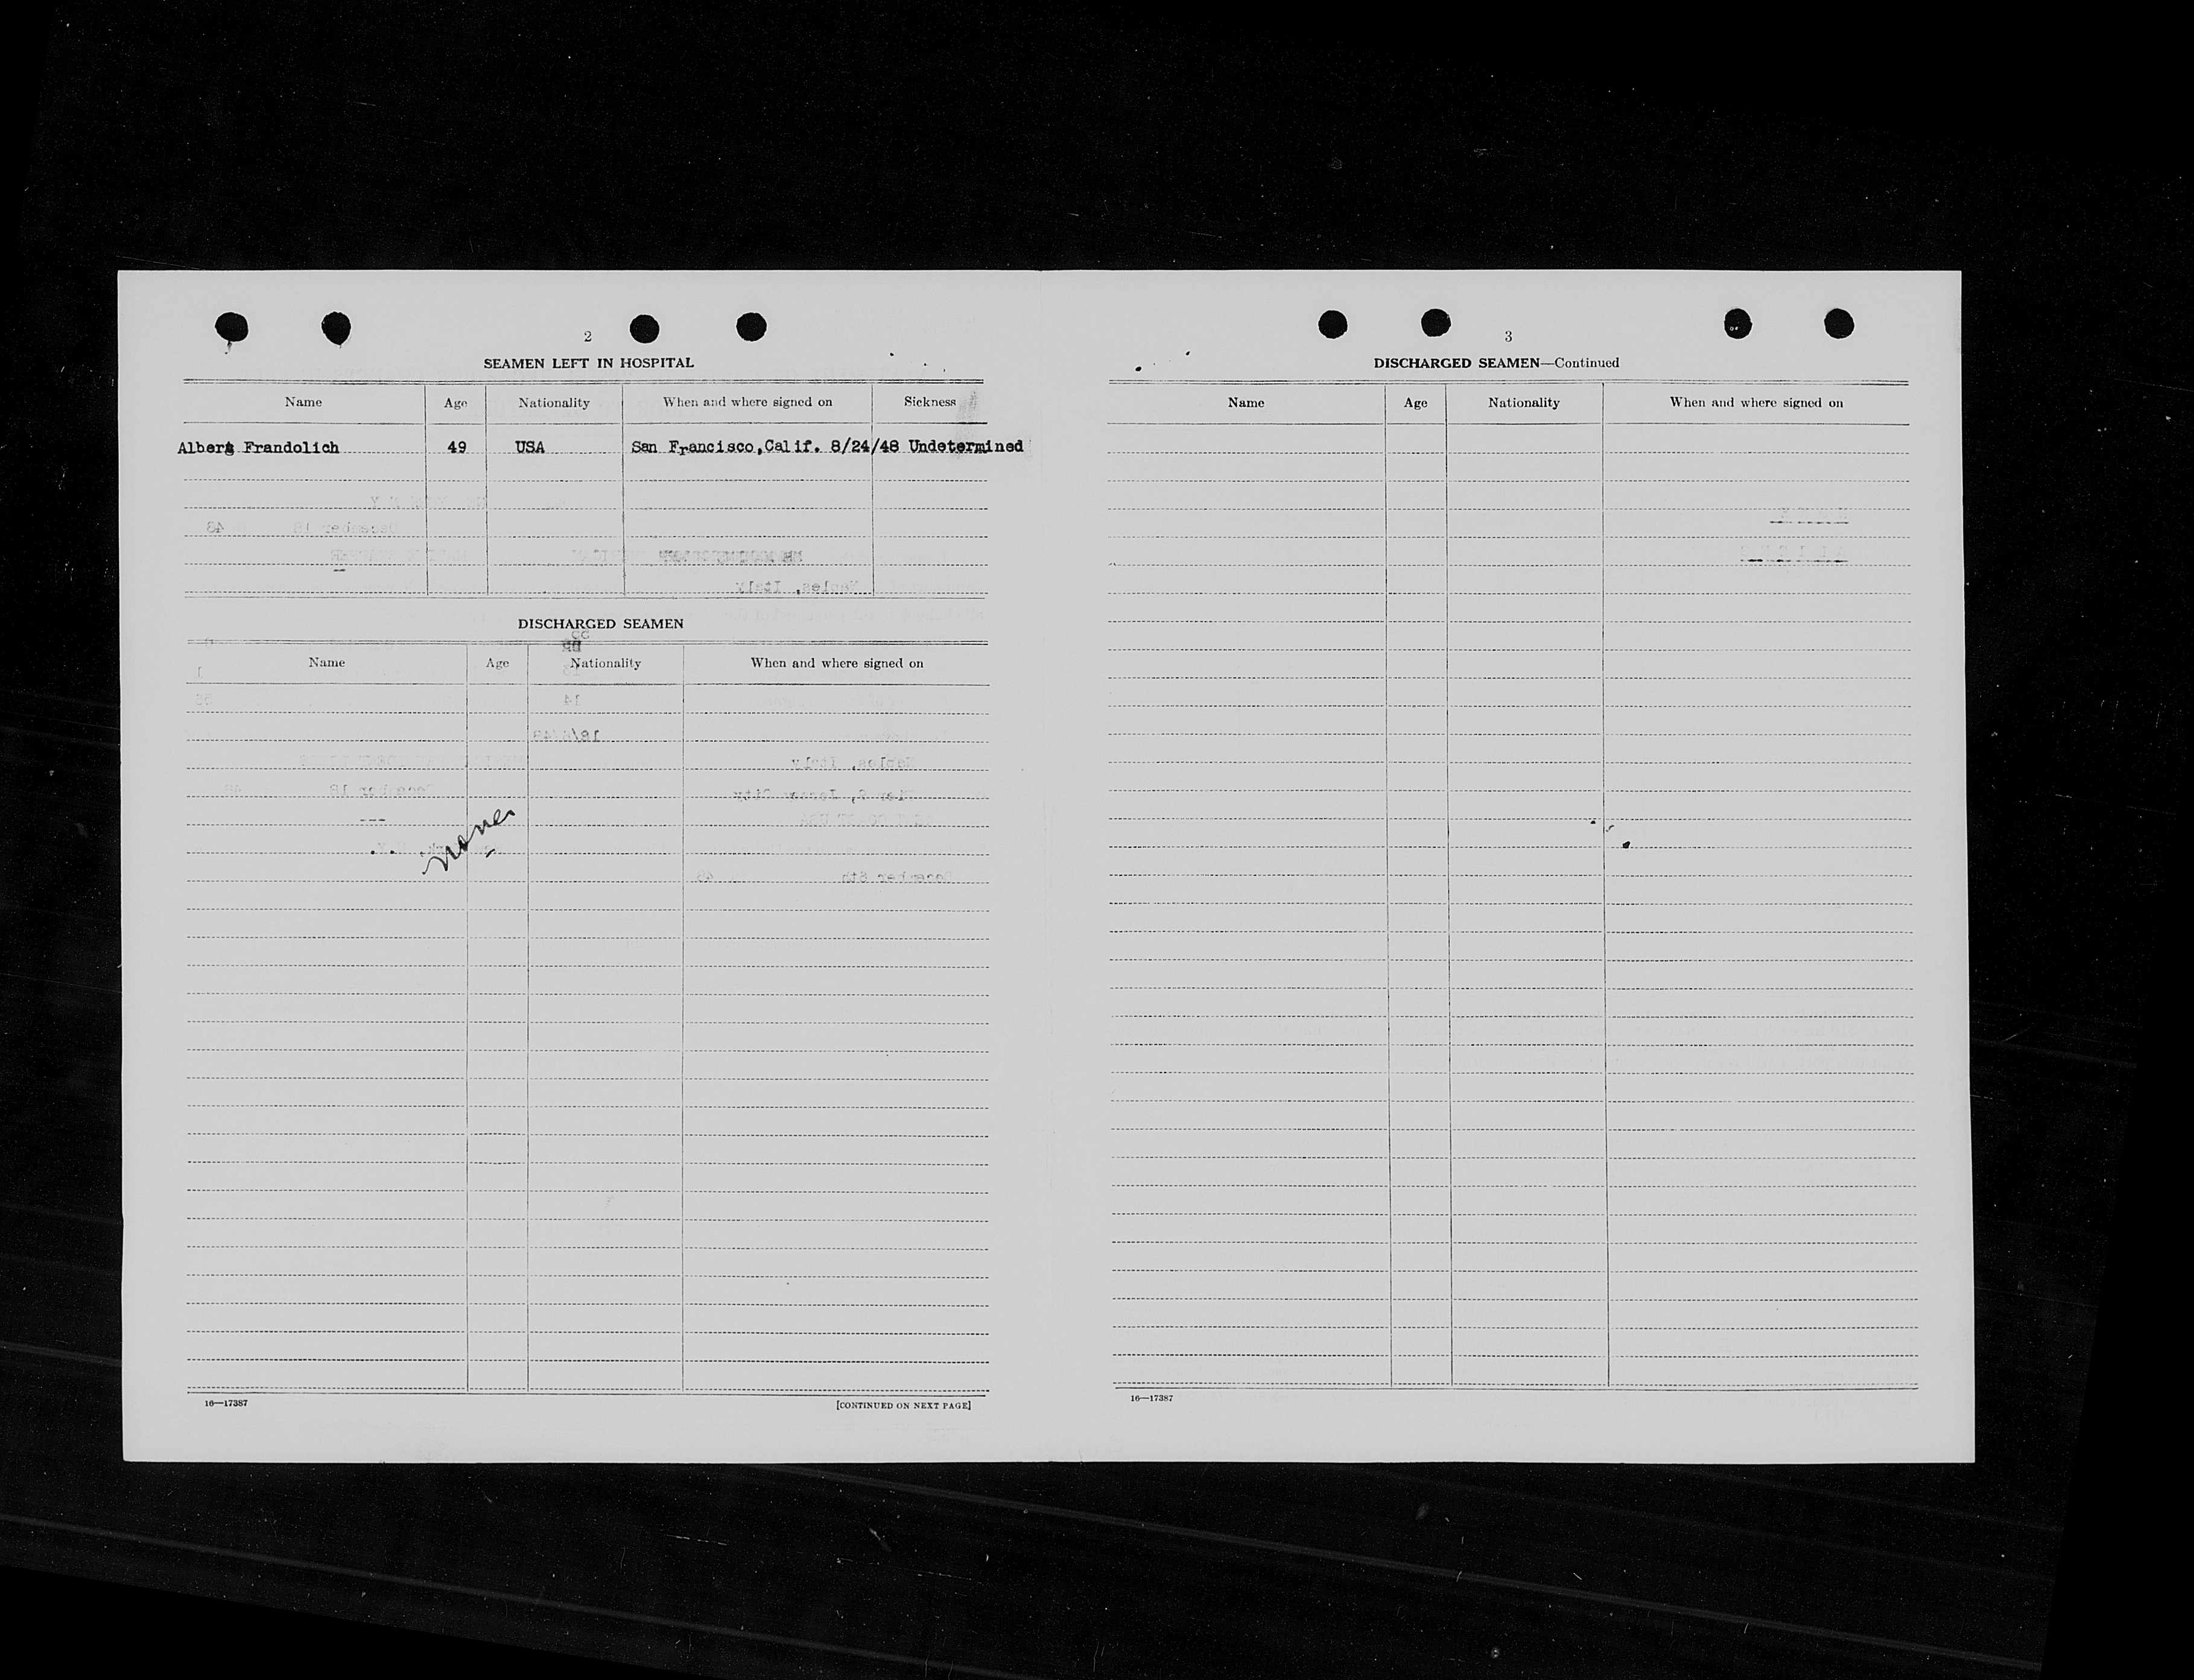 2
SEAMEN LEFT IN HOSPITAL
Name Age Nationality When and where signed on Sickness
Albert Frandolich 49 USA San Francisco,Calif. 8/24/48 Undetermined
DISCHARGED SEAMEN
Name Age Nationality When and where signed on
None
16—17387 [CONTINUED ON NEXT PAGE]
3
DISCHARGED SEAMEN—Continued
Name Age Nationality When and where signed on
16—17387